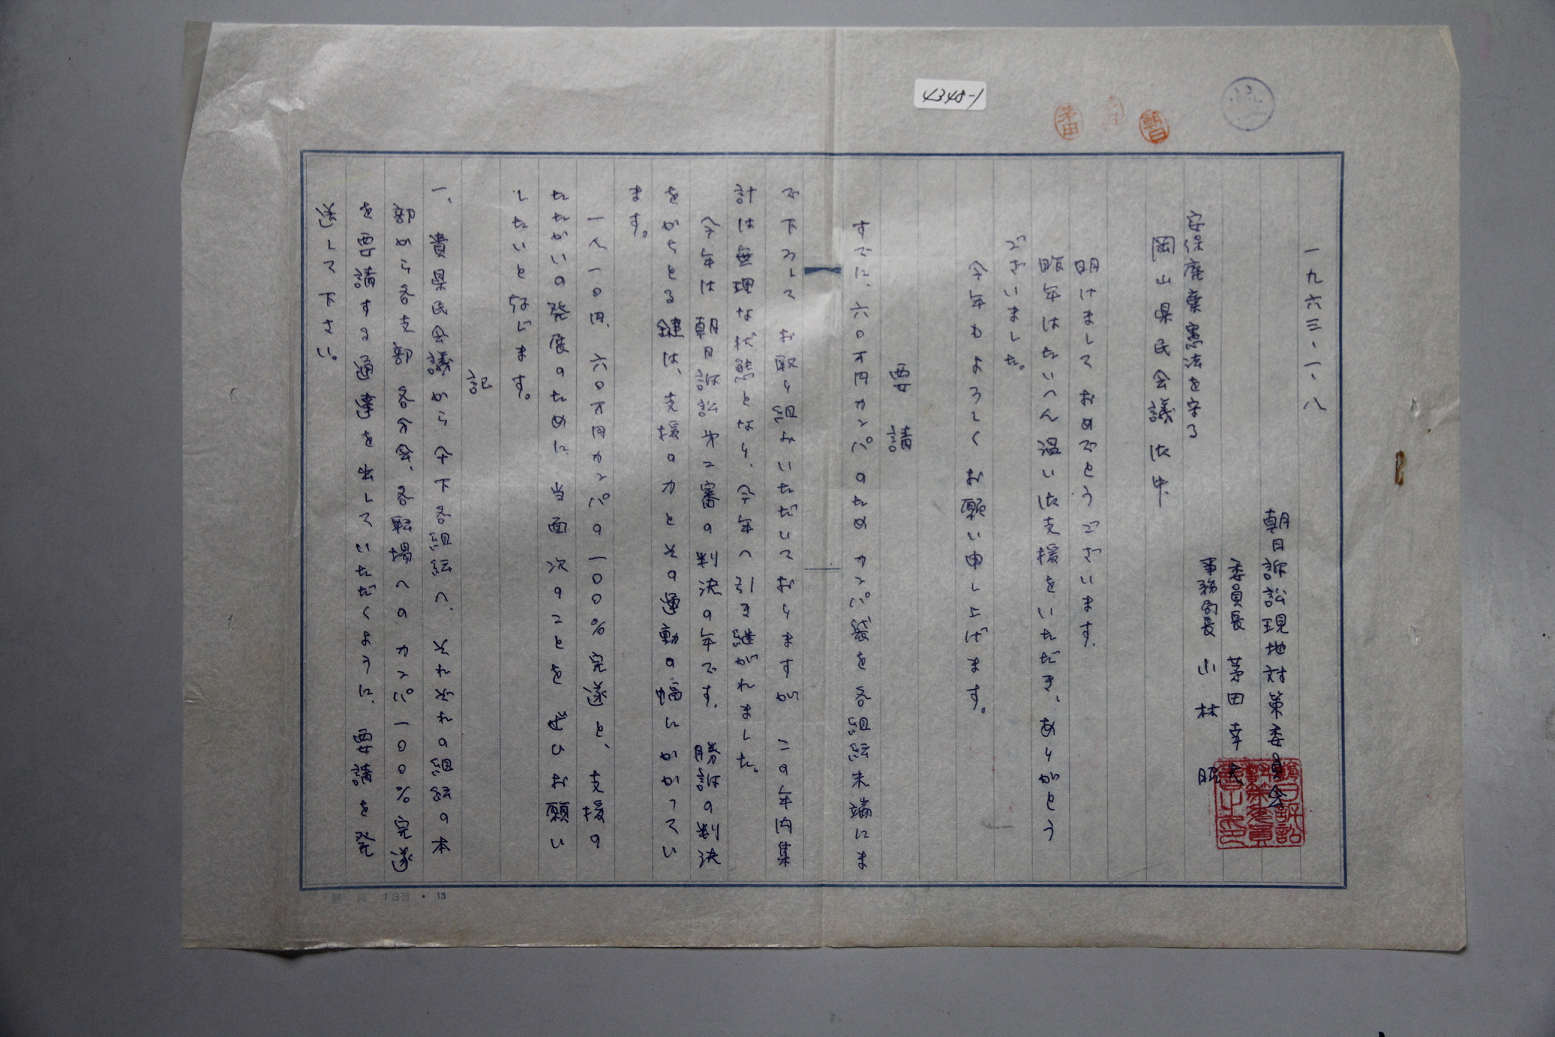 4348-1
一九六三・一・八
朝日訴訟現地対策委員会
委員長 茅田幸
事務局長 小林 昭
安保廃棄憲法を守る
岡山県民会議 御中
明けましておめでとうございます。
昨年はたいへん温い御支援をいただき、ありがとう
ございました。
今年もよろしくお願い申し上げます。
要請
すでに、六〇万円カンパのためカンパ袋を各組織末端にま
で下ろして お取り組みいただいておりますが この年内集
計は無理な状態となり、今年へ引き継がれました。
今年は朝日訴訟第二審の判決の年です。勝訴の判決
をかちとる鍵は、支援の力とその運動の幅にかかってい
ます。
一人一〇円、六〇万円カンパの一〇〇%完遂と、支援の
たたかいの発展のために当面次のことをぜひお願い
したいと存じます。
記
一、貴県民会議から傘下各組織へ、それぞれの組織の本
部から各支部各分会、各職場へのカンパ一〇〇%完遂
を要請する通達を出していただくように、要請を発
送して下さい。